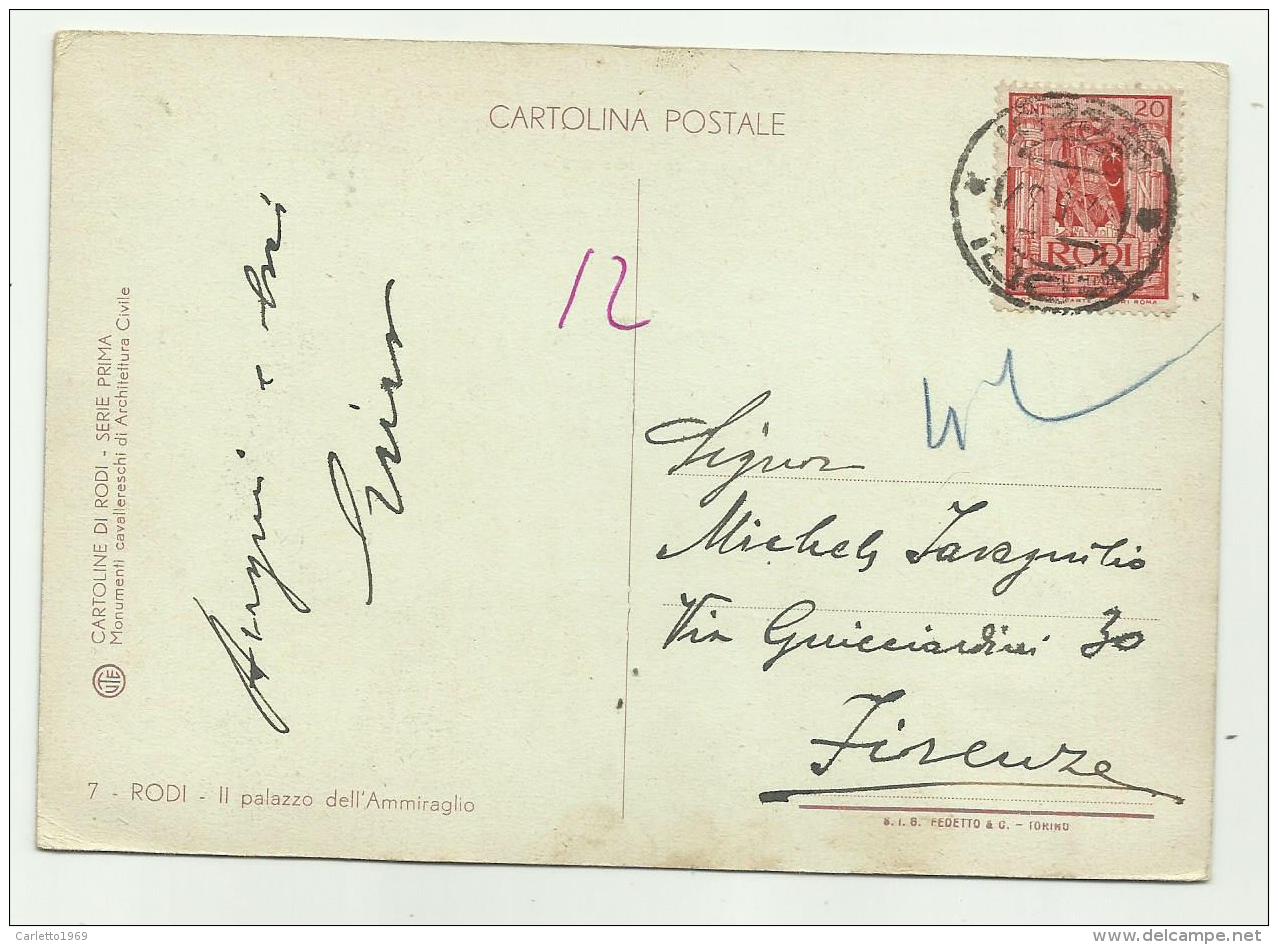 CARTOLINA POSTALE
CENT 20
RODI
12
CARTOLINE DI RODI - SERIE PRIMA
Monumenti cavallereschi di Architettura Civile
UTE
Auguri e
Signor
Michele
Via Guicciardini 30
Firenze
7 - RODI - Il palazzo dell'Ammiraglio
S.I.G. FEDETTO & C. - TORINO
Carletto1969
delcampe.net